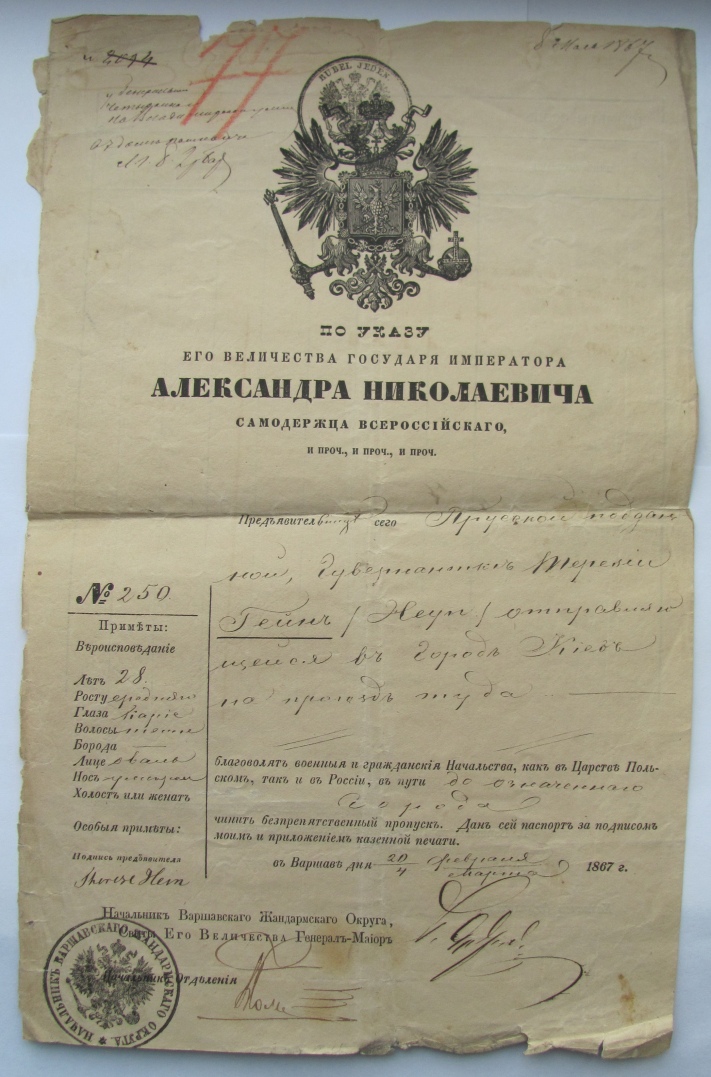 2094
77
1867
RUBEL JEDEN
ПО УКАЗУ
ЕГО ВЕЛИЧЕСТВА ГОСУДАРЯ ИМПЕРАТОРА
АЛЕКСАНДРА НИКОЛАЕВИЧА
САМОДЕРЖЦА ВСЕРОССІЙСКАГО,
И ПРОЧ., И ПРОЧ., И ПРОЧ.
сего Прусской поддан
ной, Гувернанткѣ Терезіи
Гейнъ / Heyn / отправляю
щейся въ Городъ Кіевъ
на проѣздъ туда
№ 250
Примѣты:
Вѣроисповѣданіе
Лѣтъ 28.
Росту средняго
Глаза Каріе
Волосы
Борода
Лице
Носъ
Холостъ или женатъ
Особыя примѣты:
Подпись предъявителя
Therese Heyn
благоволятъ военныя и гражданскія Начальства, какъ въ Царствѣ Поль-
скомъ, такъ и въ Россіи, въ пути до означеннаго
Города
чинить безпрепятственный пропускъ. Данъ сей паспортъ за подписомъ
моимъ и приложеніемъ казенной печати.
въ Варшавѣ дня 20/4 февраля/марта 1867 г.
Начальникъ Варшавскаго Жандармскаго Округа,
Свиты Его Величества Генералъ-Маіоръ
Начальникъ Отдѣленія
НАЧАЛЬНИКЪ ВАРШАВСКАГО ЖАНДАРМСКАГО ОКРУГА